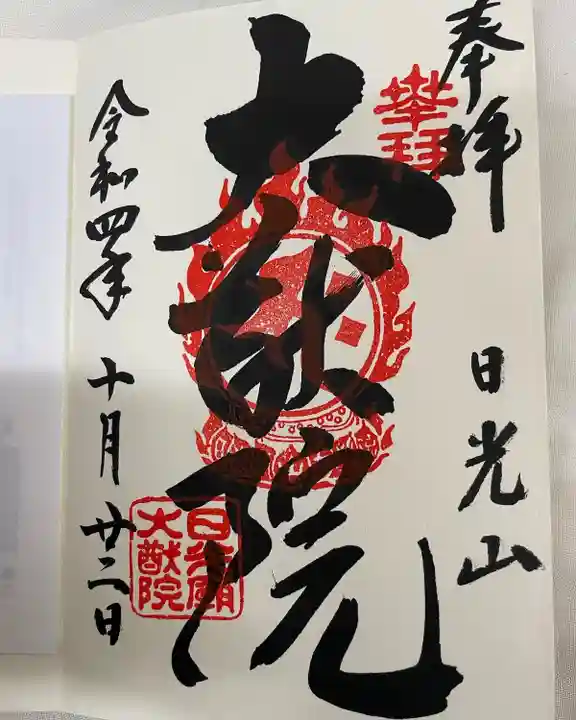 奉拝
日光山
大猷院
令和四年
十月廿二日
日光廟
大猷院